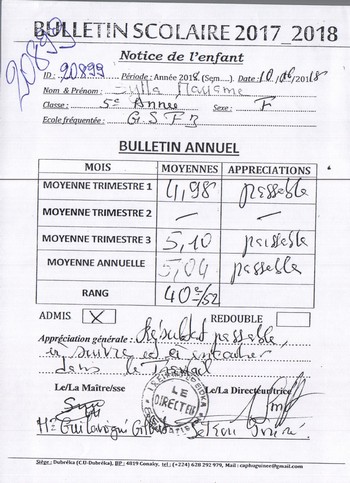 BULLETIN SCOLAIRE 2017_2018
20899
Notice de l'enfant
ID : 20899 Période : Année 2018 (Sem....). Date : 10/08/2018
Nom & Prénom : Sylla Mayame
Classe : 5e Année Sexe : F
Ecole fréquentée : G S F
BULLETIN ANNUEL
MOIS MOYENNES APPRECIATIONS
MOYENNE TRIMESTRE 1 4,98 passable
MOYENNE TRIMESTRE 2 — —
MOYENNE TRIMESTRE 3 5,10 passable
MOYENNE ANNUELLE 5,04 passable
RANG 40e/52
ADMIS X REDOUBLE
Appréciation générale : Résultat passable,
à suivre et à
dans le Travail
Le/La Maître/sse Le/La Directeur/trice
LE
DIRECTEUR
Me Guilavogui Gilbert Sekou
Siège : Dubréka (CU-Dubréka), BP : 4819 Conakry, tel : (+224) 628 292 979, Mail : caphuguinee@gmail.com